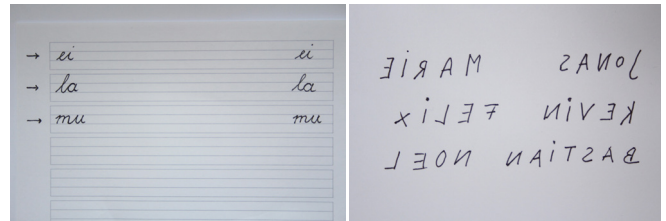 → ei ei
→ la la
→ mu mu
JoNAS MARiE
KEViN FELiX
BASTiAN NOEL